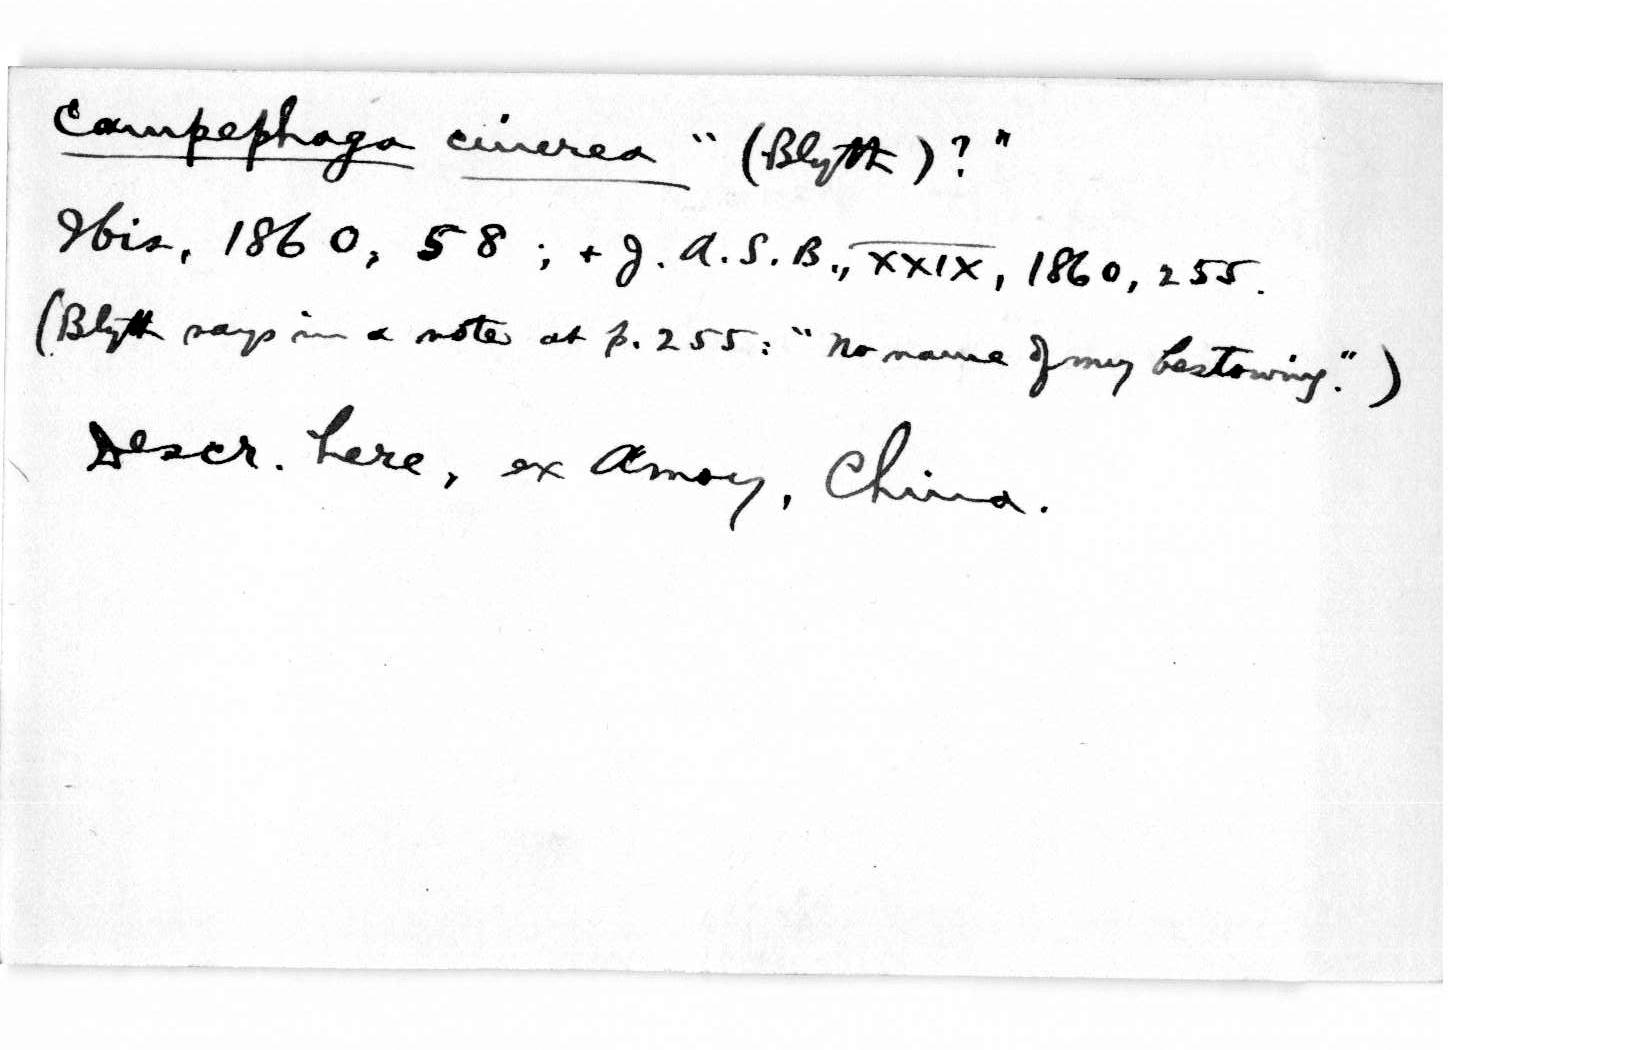 Campephaga cinerea "(Blyth)?"
Ibis, 1860, 58; + J. A. S. B., XXIX, 1860, 255.
(Blyth says in a note at p. 255: "no name of my bestowing.")
Descr. here, ex Amoy, China.